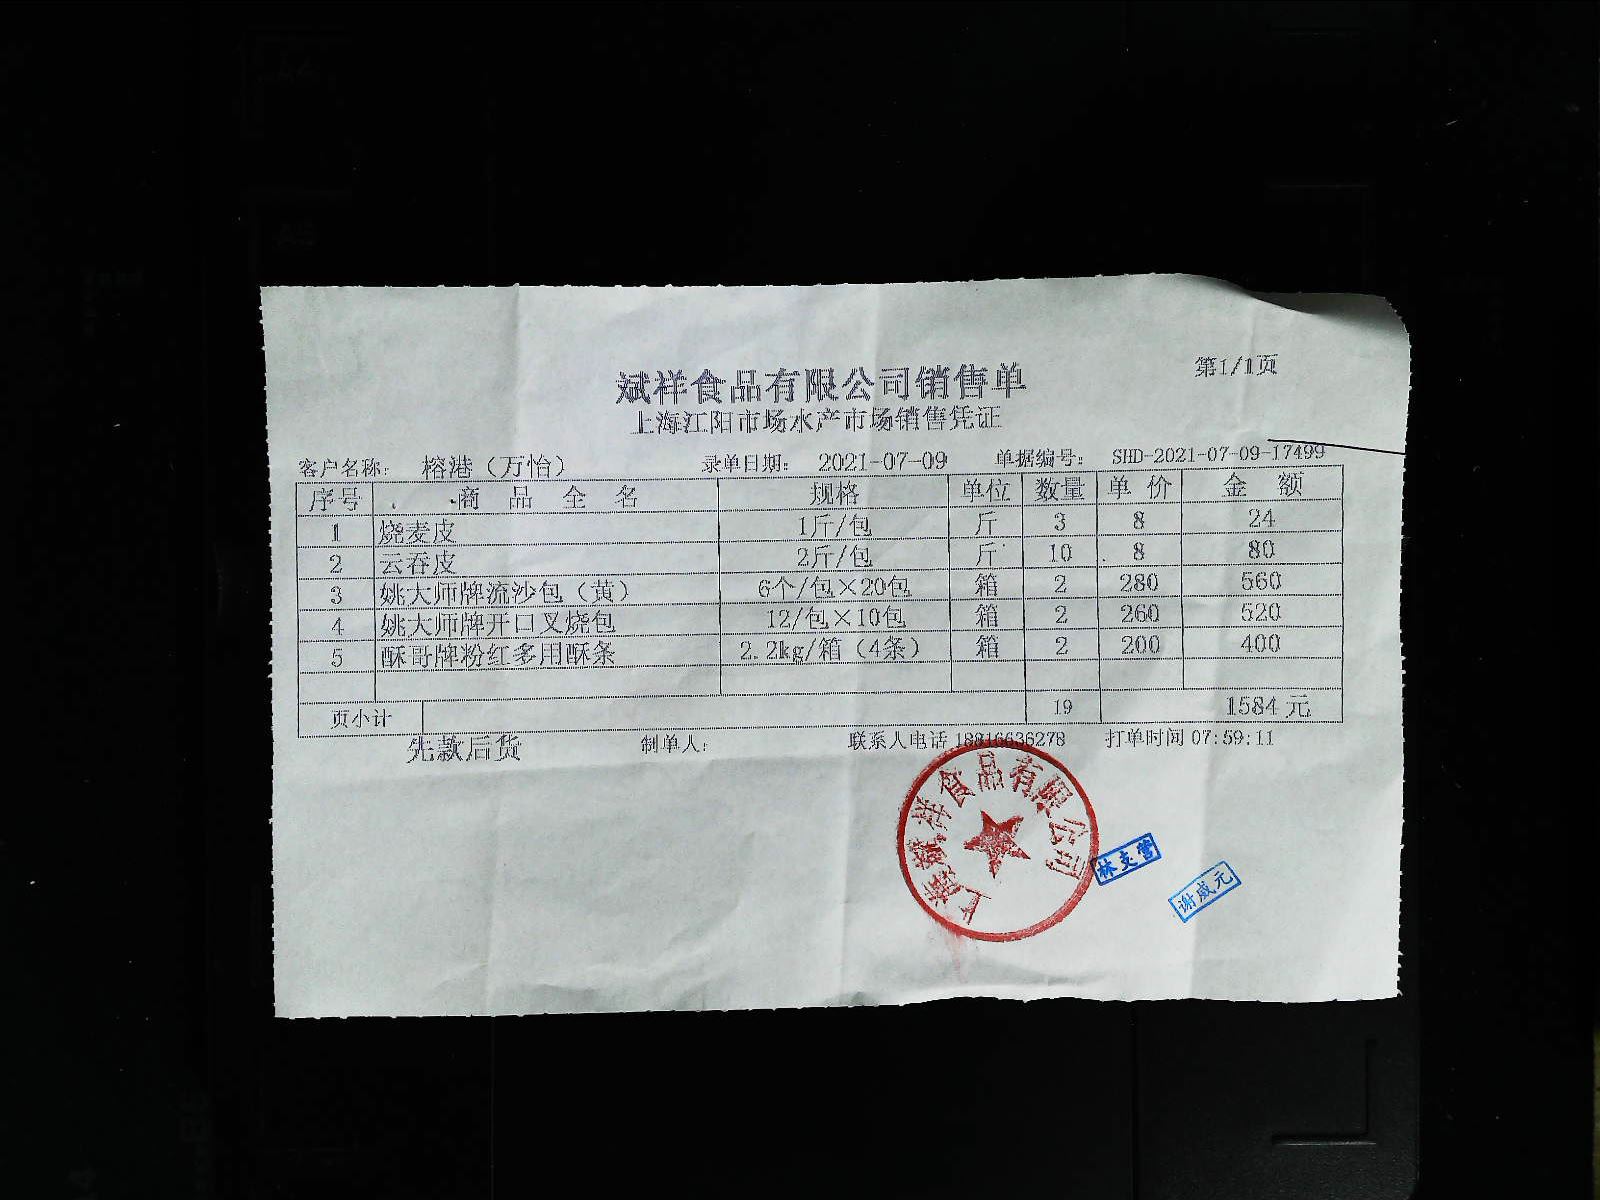 第1/1页
斌祥食品有限公司销售单
上海江阳市场水产市场销售凭证
客户名称: 榕港（万怡） 录单日期: 2021-07-09 单据编号: SHD-2021-07-09-17499
序号 商品全名 规格 单位 数量 单价 金额
1 烧麦皮 1斤/包 斤 3 8 24
2 云吞皮 2斤/包 斤 10 8 80
3 姚大师牌流沙包（黄） 6个/包×20包 箱 2 280 560
4 姚大师牌开口叉烧包 12/包×10包 箱 2 260 520
5 酥哥牌粉红多用酥条 2.2kg/箱（4条） 箱 2 200 400
页小计 19 1584元
先款后货 制单人: 联系人电话 18816636278 打单时间 07:59:11
上海斌祥食品有限公司
林支营
谢威元